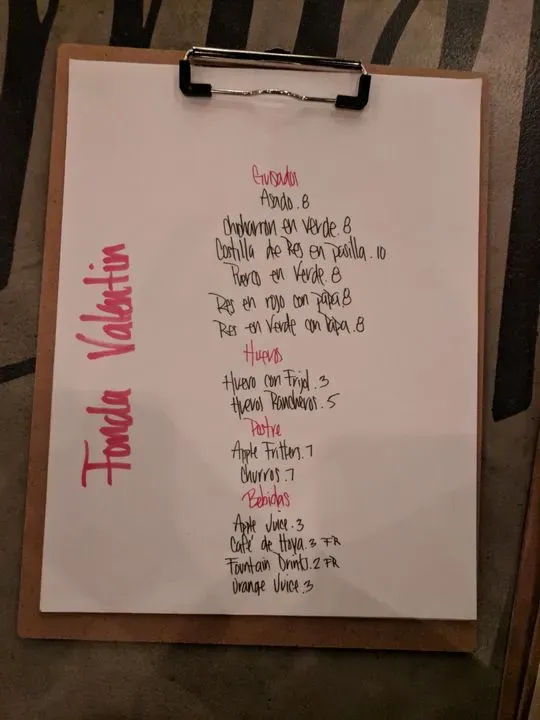 Fonda Valentin
Guisados
Asado. 8
Chicharron en verde. 8
Costilla de Res en pasilla. 10
Puerco en Verde. 8
Res en rojo con papa 8
Res en Verde con Papa. 8
Huevos
Huevo con Frijol. 3
Huevos Rancheros. 5
Postre
Apple Fritters. 7
Churros. 7
Bebidas
Apple Juice. 3
Café de Hoya. 3 FR
Fountain Drinks. 2 FR
Orange Juice. 3